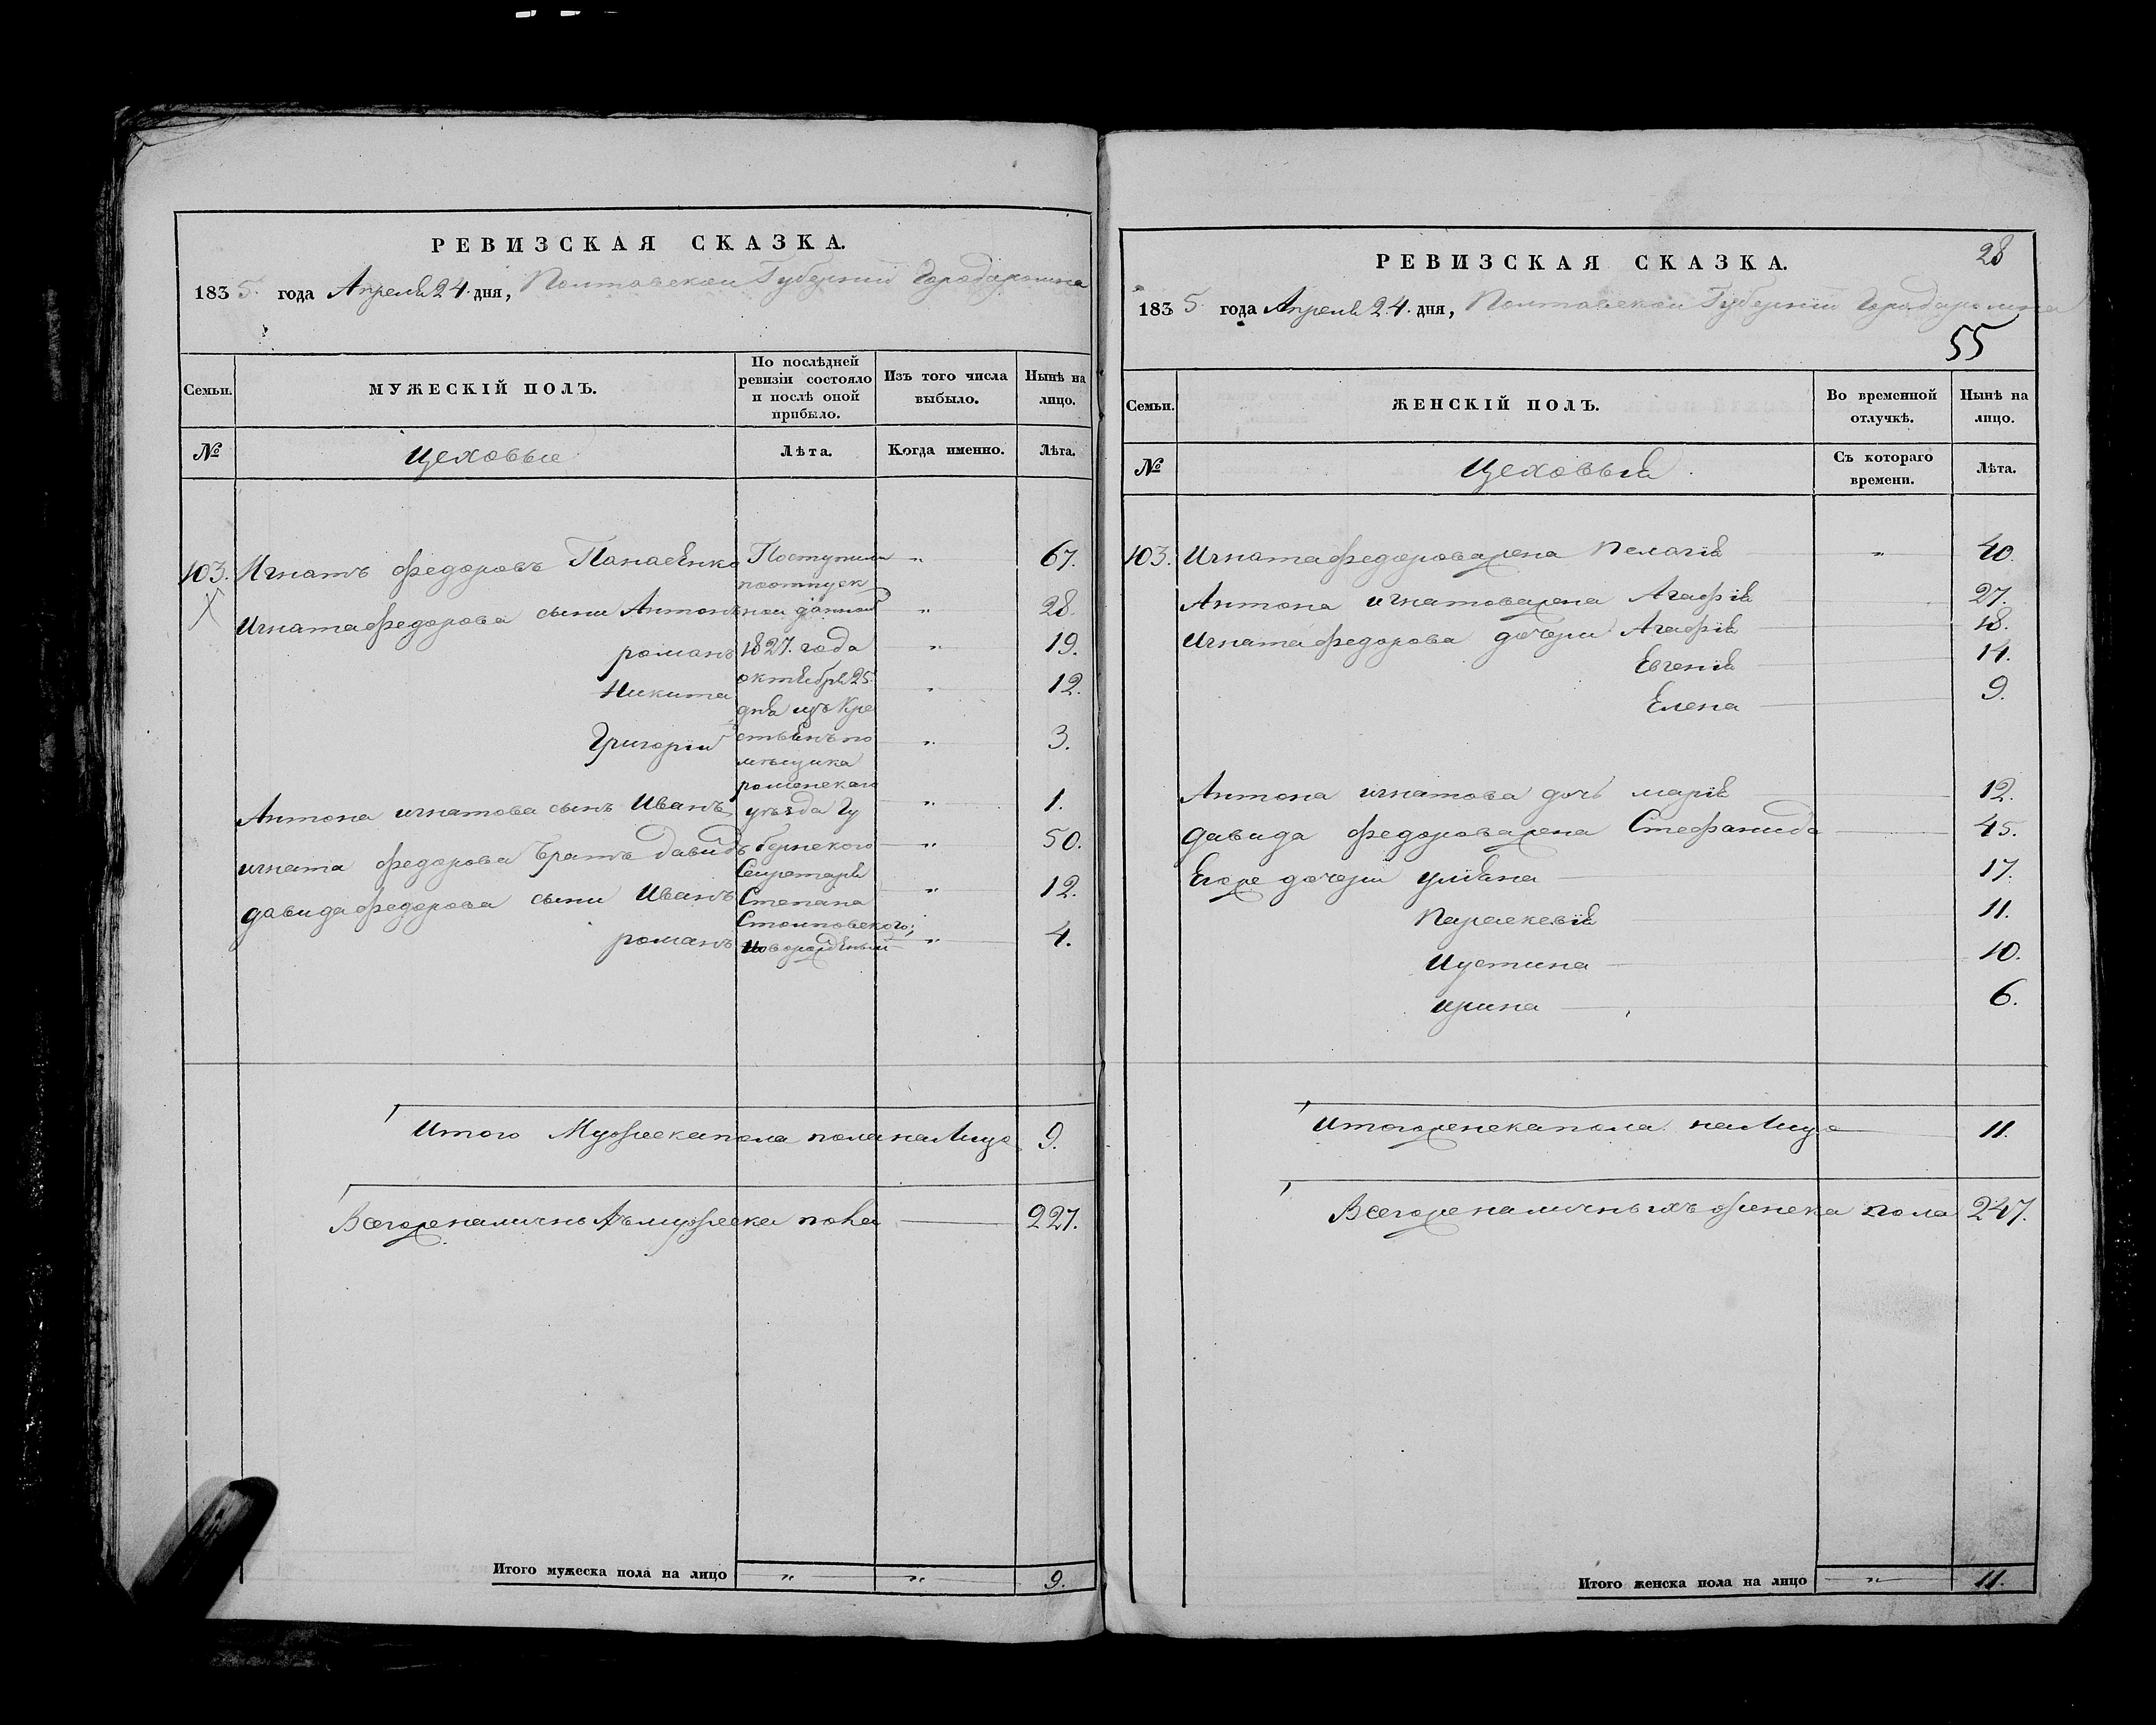 РЕВИЗСКАЯ СКАЗКА.
1835. года Апреля 24. дня, Полтавской Губернии Города ромна
Семьи. МУЖЕСКІЙ ПОЛЪ. По послѣдней ревизіи состояло и послѣ оной прибыло. Изъ того числа выбыло. Нынѣ на лицо.
№ Цеховые Лѣта. Когда именно. Лѣта.
103. Игнатъ федоровъ Панасенко Поступили „ 67.
поотпуск
Игната федорова сыни Антонъ ной данной „ 28.
романъ 1827. года „ 19.
октября 25.
Никита „ 12.
дня изъ Кре
Григорий стьянъ по „ 3.
мѣщика
роменскаго
Антона игнатова сынъ Иванъ уѣзда Гу „ 1.
игната федорова братъ давидъ бернского „ 50.
Секретаря
давида федорова сыни Иванъ Степана „ 12.
романъ новорожденый „ 4.
Итого Мужеска пола налицо 9.
Всегоже наличныхъ мужеска пола 227.
Итого мужеска пола на лицо „ „ 9.
28
РЕВИЗСКАЯ СКАЗКА.
1835. года Апреля 24. дня, Полтавской Губернии Города ромна
55
Семьи. ЖЕНСКІЙ ПОЛЪ. Во временной отлучкѣ. Нынѣ на лицо.
№ Цеховыя Съ котораго времени. Лѣта.
103. Игната федорова жена Пелагія „ 40.
Антона игнатова жена Агафія 27.
Игната федорова дочери Агафія 18.
Евгенія 14.
Елена 9.
Антона игнатова дочь марія 12.
давида федорова жена Стефанида 45.
Егоже дочери улияна 17.
Параскевія 11.
Иустина 10.
ирина 6.
Итого женска пола налицо 11.
Всегоже наличныхъ женска пола 247.
Итого женска пола на лицо „ 11.